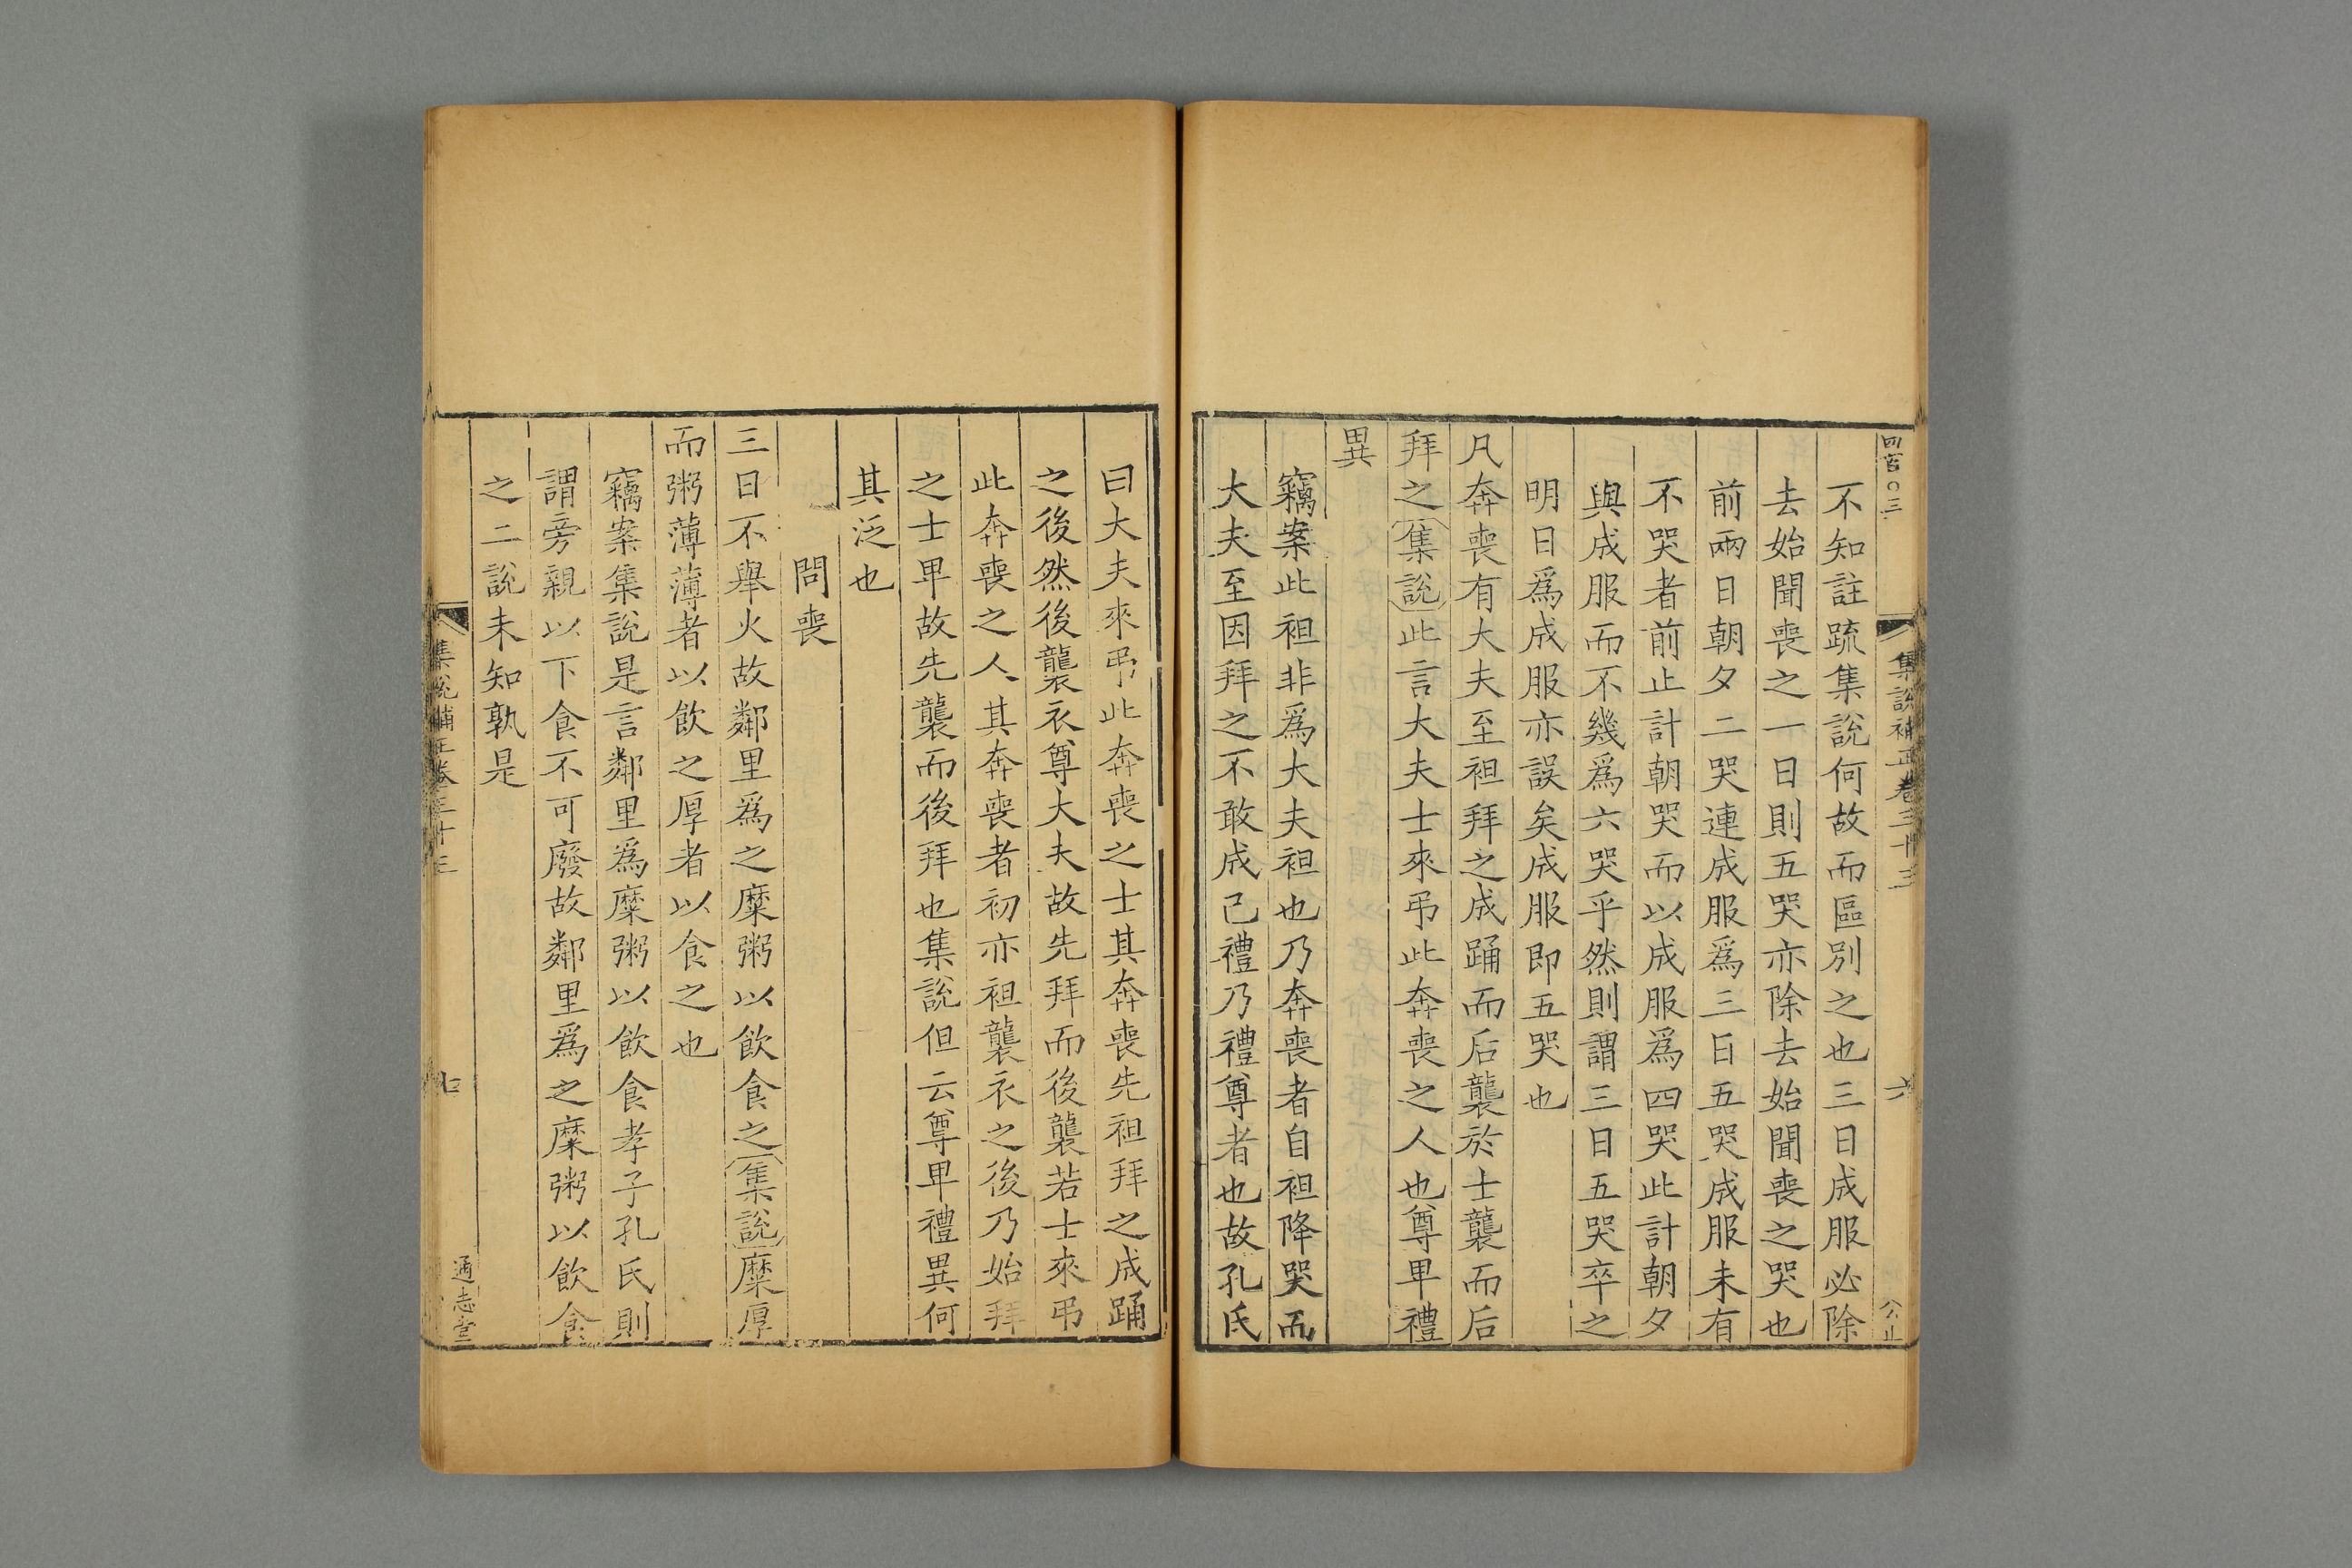 四百〇三
集說補正卷三十三
六
公止
不知註疏集說何故而區別之也三日成服必除
去始聞喪之一日則五哭亦除去始聞喪之哭也
前兩日朝夕二哭連成服爲三日五哭成服未有
不哭者前止計朝哭而以成服爲四哭此計朝夕
與成服而不幾爲六哭乎然則謂三日五哭卒之
明日爲成服亦誤矣成服即五哭也
凡奔喪有大夫至袒拜之成踊而后襲於士襲而后
拜之集說此言大夫士來弔此奔喪之人也尊卑禮
異
竊案此袒非爲大夫袒也乃奔喪者自袒降哭而
大夫至因拜之不敢成己禮乃禮尊者也故孔氏
曰大夫來弔此奔喪之士其奔喪先袒拜之成踊
之後然後襲衣尊大夫故先拜而後襲若士來弔
此奔喪之人其奔喪者初亦袒襲衣之後乃始拜
之士卑故先襲而後拜也集說但云尊卑禮異何
其泛也
問喪
三日不舉火故鄰里爲之糜粥以飲食之集說糜厚
而粥薄薄者以飲之厚者以食之也
竊案集說是言鄰里爲糜粥以飲食孝子孔氏則
謂旁親以下食不可廢故鄰里爲之糜粥以飲食
之二說未知孰是
集說補正卷三十三
七
通志堂